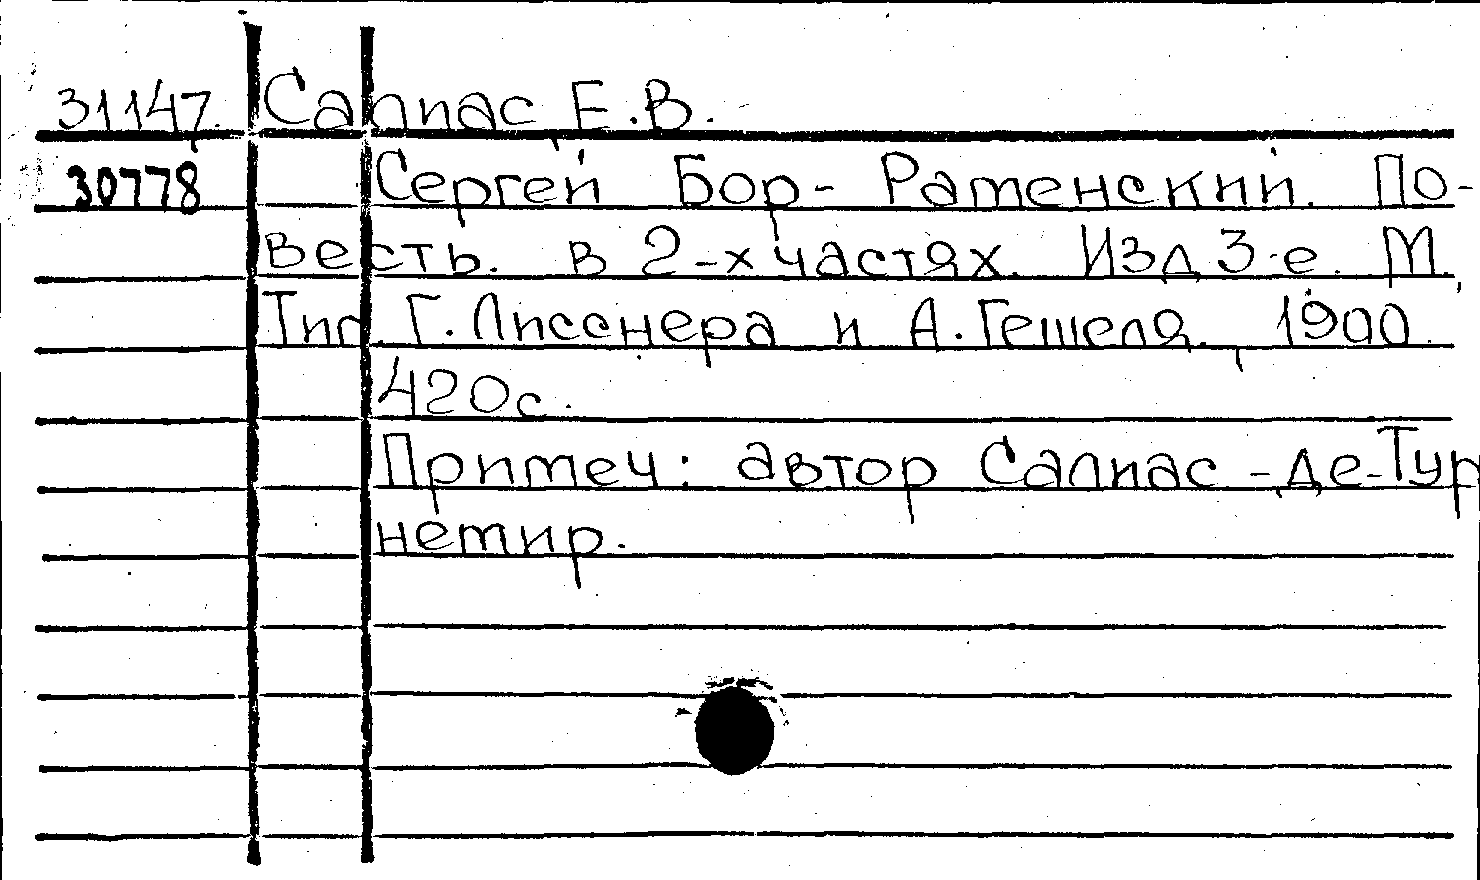 31147. Салиас, Е.В.
30778 Сергей Бор-Раменский. По-
весть. в 2-х частях. Изд 3-е. М.,
Тип. Г. Лисснера и А. Гешеля., 1900.
420с.
Примеч: автор Салиас-де-Тур
немир.